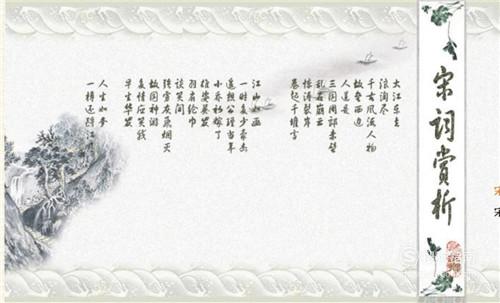 宋词赏析
大江东去
浪淘尽
千古风流人物
故垒西边
人道是
三国周郎赤壁
乱石崩云
惊涛裂岸
卷起千堆雪
江山如画
一时多少豪杰
遥想公瑾当年
小乔初嫁了
雄姿英发
羽扇纶巾
谈笑间
灰飞烟灭
故国神游
多情应笑我
早生华发
人生如梦
一樽还酹江